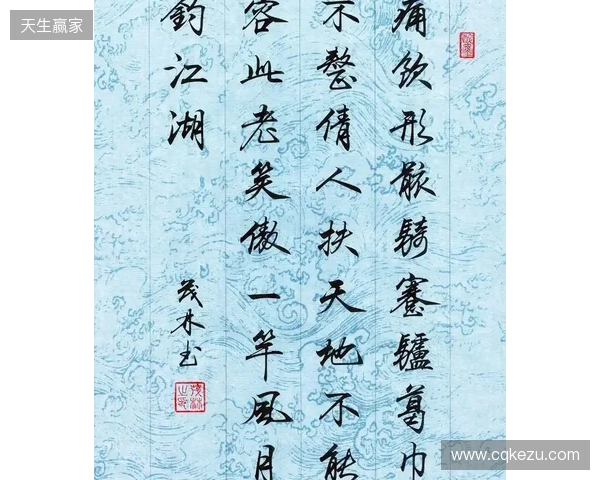 天生赢家
痛飲形骸騎蹇驢葛巾
不整倩人扶天地不能
容此老笑傲一竿風月
釣江湖
茂林书
www.cqkezu.com